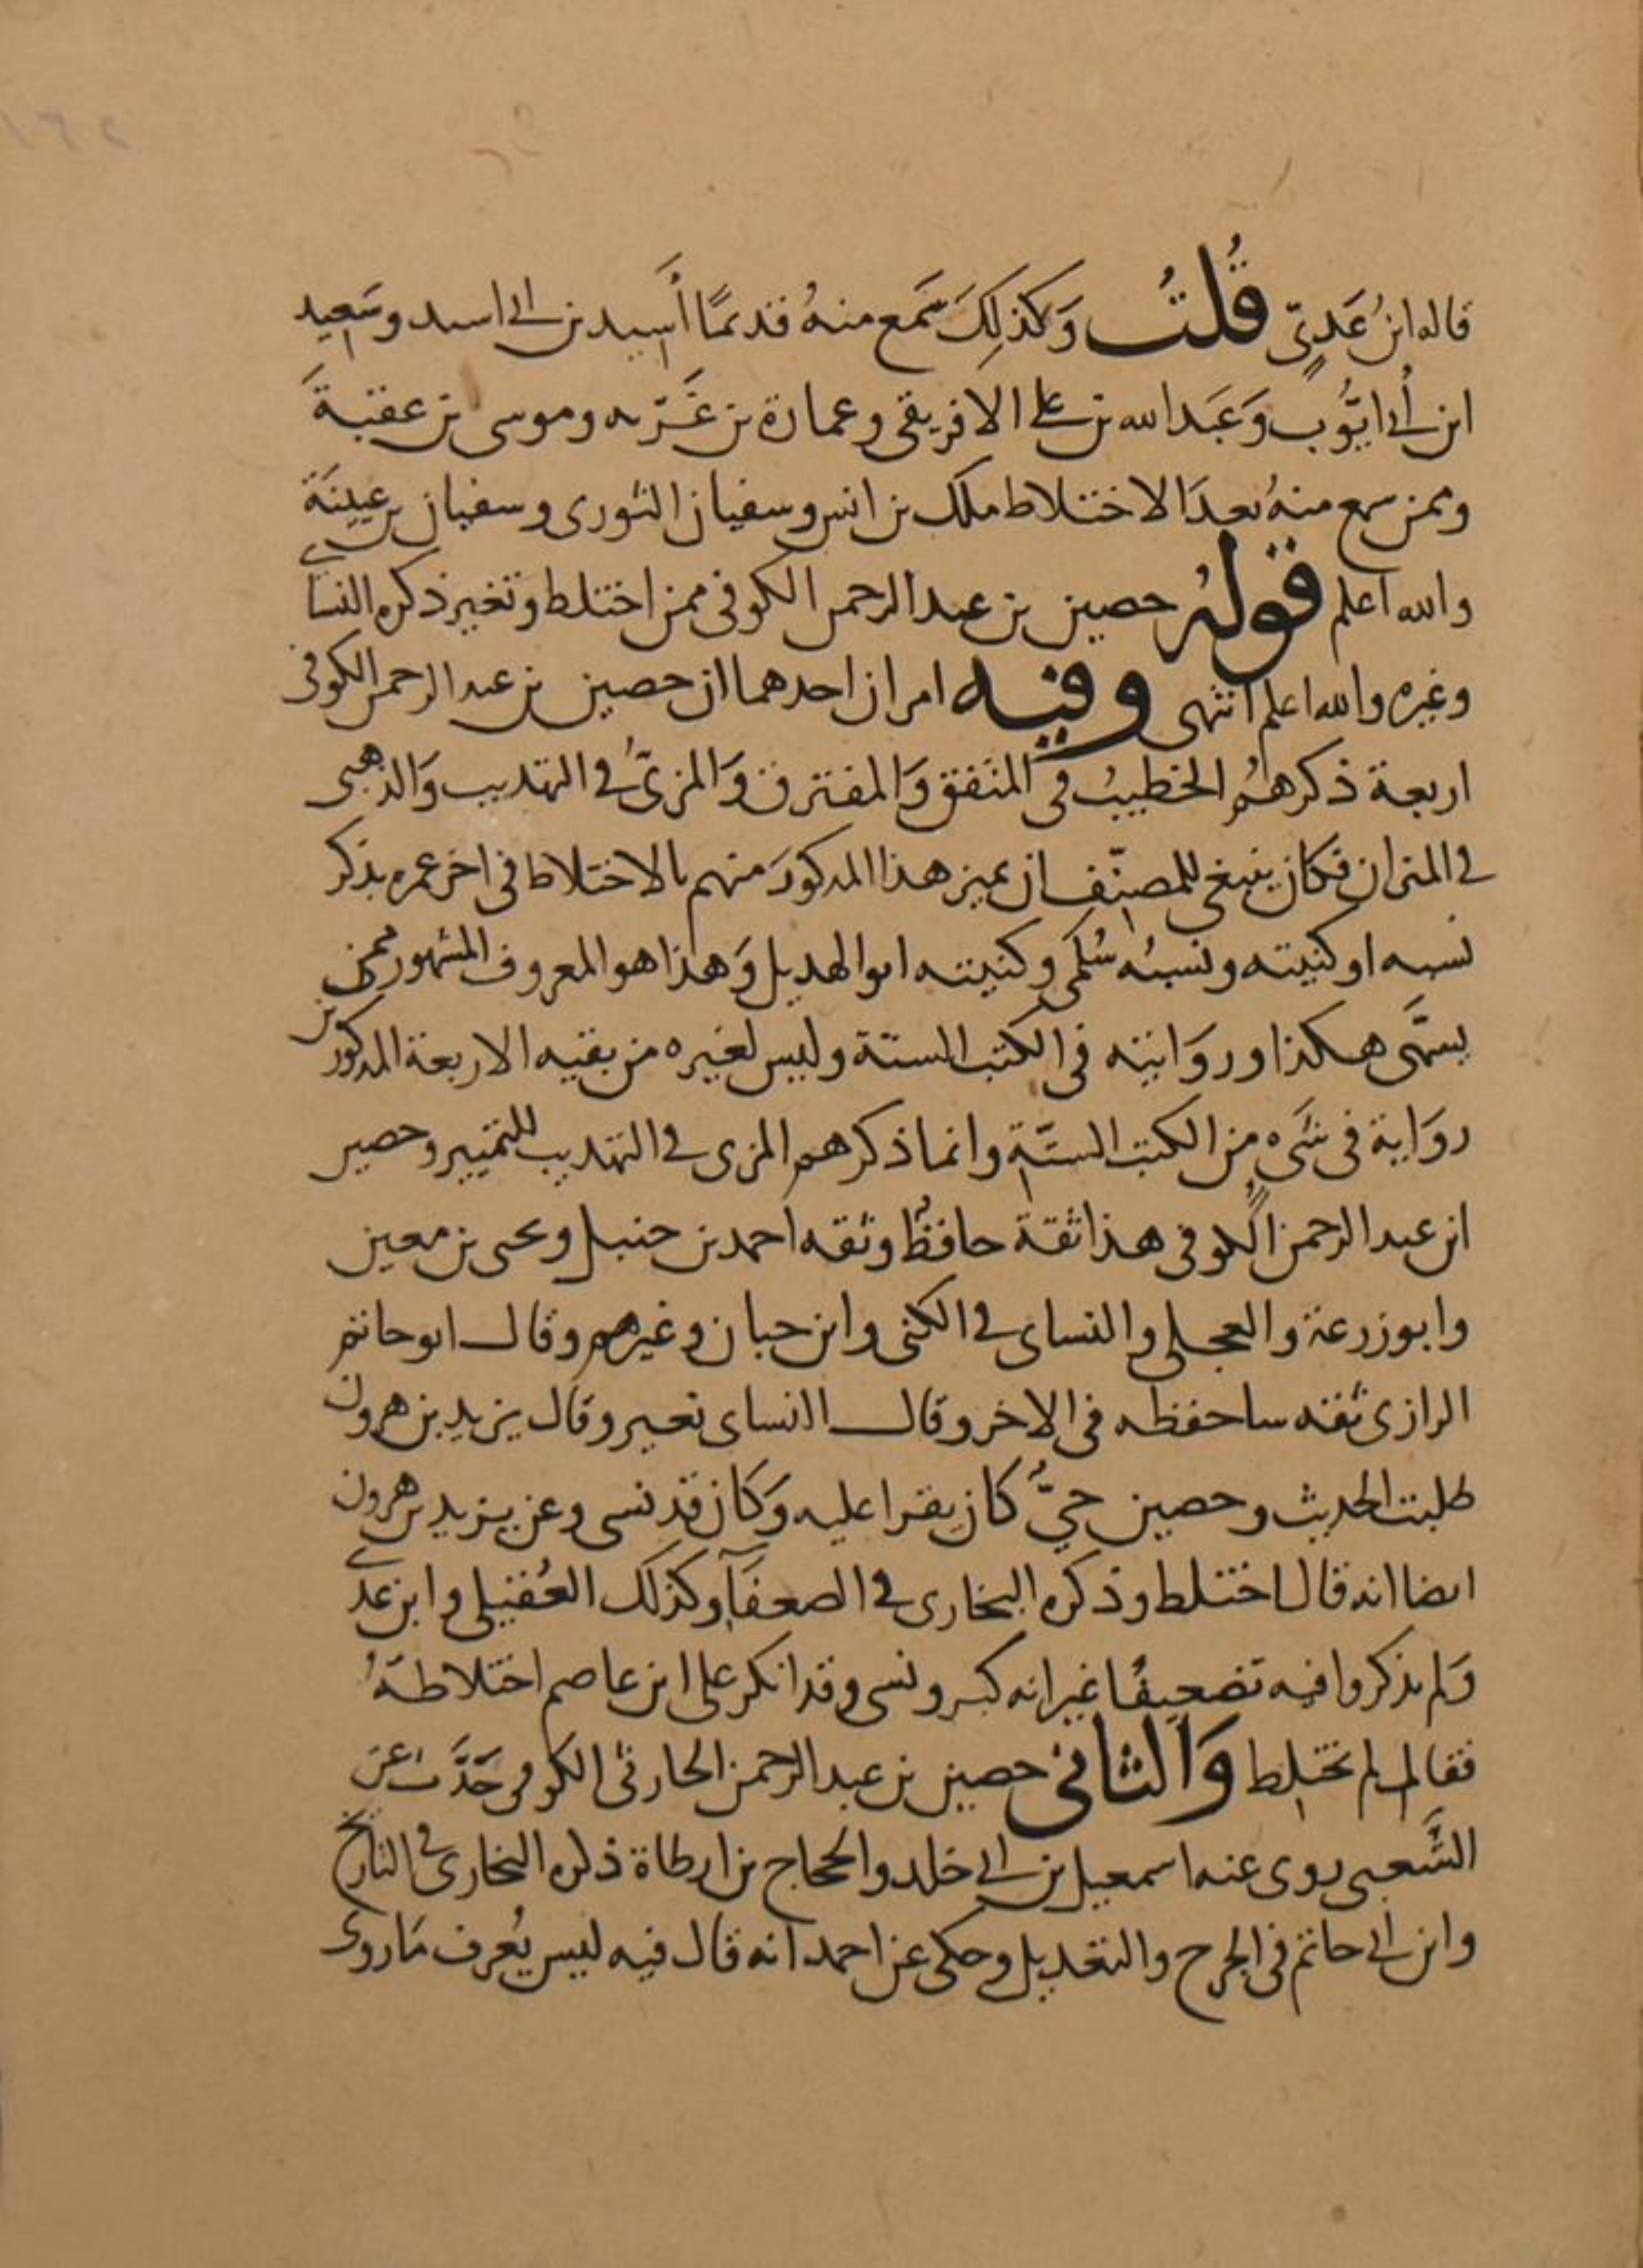 قاله ابنُ عَدِيّ قُلتُ وَكذلِكَ سَمَع منهُ قديمًا أَسِيد بن ابى اسيد وسَعِيد
ابن أبى ايّوُب وَعَبَد الله بن على الافريقى وعمارة بن غَزّيه وموسى بن عقبةَ
وممن سمع منهُ بعدَ الاختلاط ملك بن انس وسفيان الثورى وسفيان بن عيينَة
والله اعلم قولهُ حصين بن عبد الرحمن الكوفى ممن اختلط وتغير ذكره النساى
وغيره والله اعلم انتهى وفيه امران احدهما ان حصين بن عبد الرحمن الكوفى
اربعة ذكرهُم الخطيبُ فى المتفق وَالمفترق وَالمزىُّ فى التهذيب وَالذهبى
فى الميزان فكان ينبغى للمصنّف ان يميز هذا المذكورَ منهم بالاختلاط فى اخر عمره بذكر
نسبه او كنيته ونسبُه سُلمى وكنيته ابو الهذيل وَهذا هو المعروف المشهور ممن
يسمَّى هكذا وروَايته فى الكتب الستة وليس لغيره من بقيه الاربعة المذكورين
روَاية فى شَىءٍ من الكتب الستّة وانما ذكرهم المزى فى التهذيب للتمييز وحصين
ابن عبد الرحمن الكوفى هذا ثقة حافظٌ وثقه احمد بن حنبل ويحيى بن معين
وابو زرعة والعجلى والنساى فى الكنى وابن حبان وغيرهم وقال ابو حاتم
الرازى ثقه ساحفظه فى الاخر وقال النساى تغير وقال يزيد بن هرون
طلبت الحديث وحصين حيٌّ كان يقرا عليه وَكان قد نسى وعن يزيد بن هرون
ايضا انه قال اختلط وذكره البخارى فى الضعفَآ وكذلك العُقيلى وابن عدى
وَلم يذكروا فيه تضعِيفًا غير انه كبر ونسى وقد انكر على ابن عاصم اختلاطَهُ
فقال لم يختلط وَالثانى حصين بن عبد الرحمن الحارثى الكوفى حَدَّث عن
الشَّعبى روى عنه اسمعيل بن ابى خلد والحجاج بن ارطاة ذكره البخارى فى التاريخ
وابن ابى حاتم فى الجرح والتعديل وحكى عن احمد انه قال فيه ليس يُعرف مَا روى